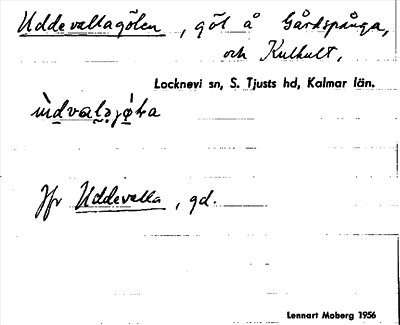 Uddevallagölen, göl å Gårdspånga,
och Kulhult,
Locknevi sn, S. Tjusts hd, Kalmar län.
Jfr Uddevalla, gd.
Lennart Moberg 1956